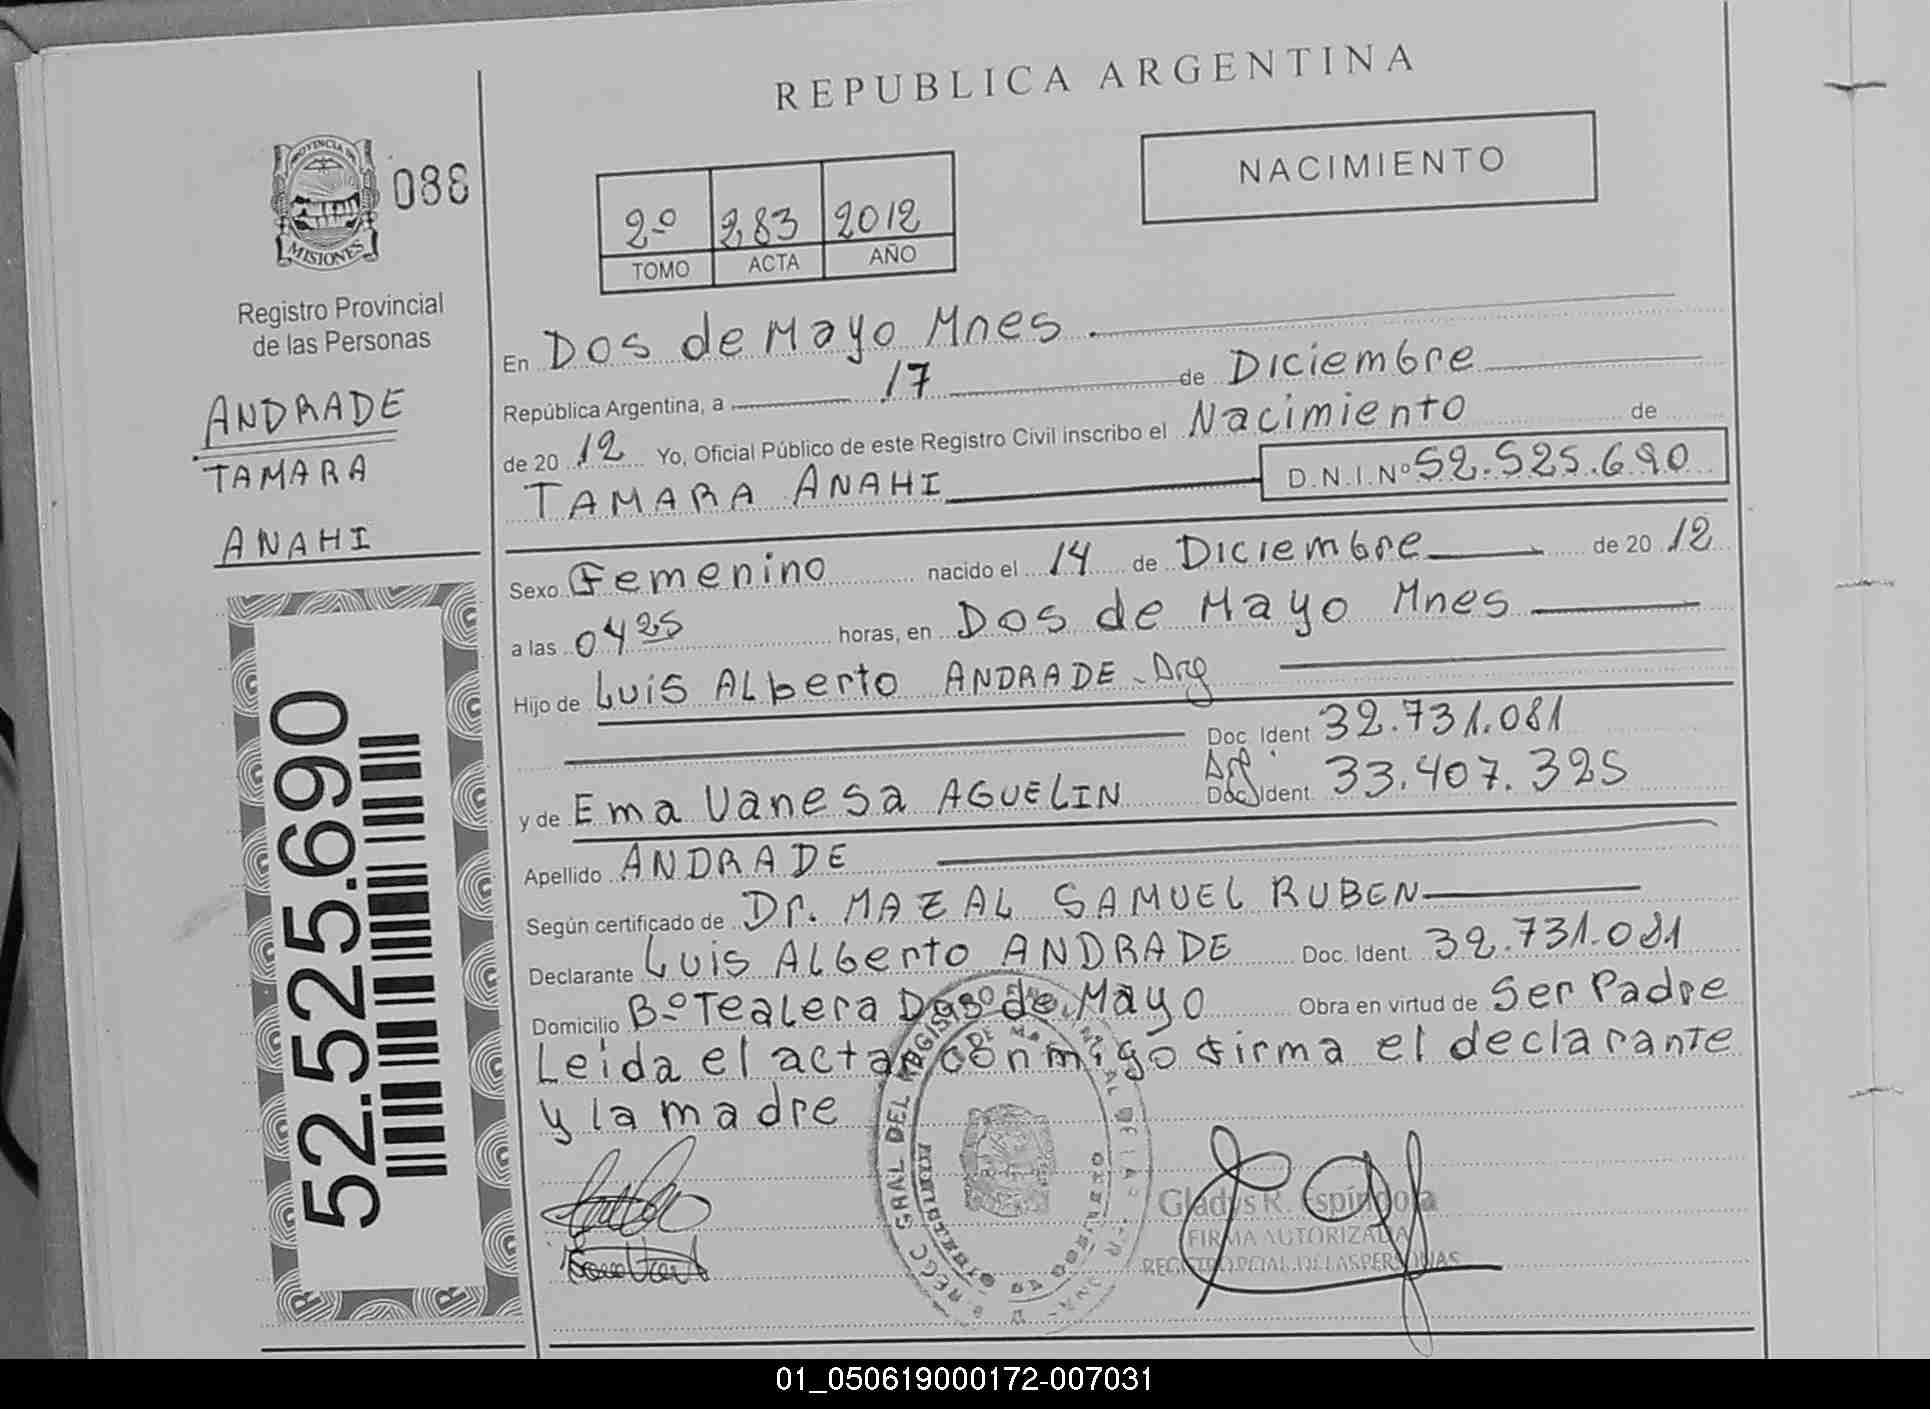 REPUBLICA ARGENTINA
PROVINCIA DE
MISIONES
088
NACIMIENTO
2º 283 2012
TOMO ACTA AÑO
Registro Provincial
de las Personas
ANDRADE
TAMARA
ANAHI
52.525.690
En Dos de Mayo Mnes
República Argentina, a 17 de Diciembre
de 20 12 Yo, Oficial Público de este Registro Civil inscribo el Nacimiento de
TAMARA ANAHI D.N.I.Nº 52.525.690
Sexo Femenino nacido el 14 de Diciembre de 20 12
a las 04 25 horas, en Dos de Mayo Mnes
Hijo de Luis Alberto ANDRADE - Arg
Doc. Ident 32.731.081
y de Ema Vanesa AGUELIN Arg Doc. Ident. 33.407.325
Apellido ANDRADE
Según certificado de Dr. MAZAL SAMUEL RUBEN
Declarante Luis Alberto ANDRADE Doc. Ident. 32.731.081
Domicilio Bº Tealera Dos de Mayo Obra en virtud de Ser Padre
Leida el acta conmigo firma el declarante
y la madre
Gladys R. Espíndola
FIRMA AUTORIZADA
REGISTRO PCIAL. DE LAS PERSONAS
01_050619000172-007031